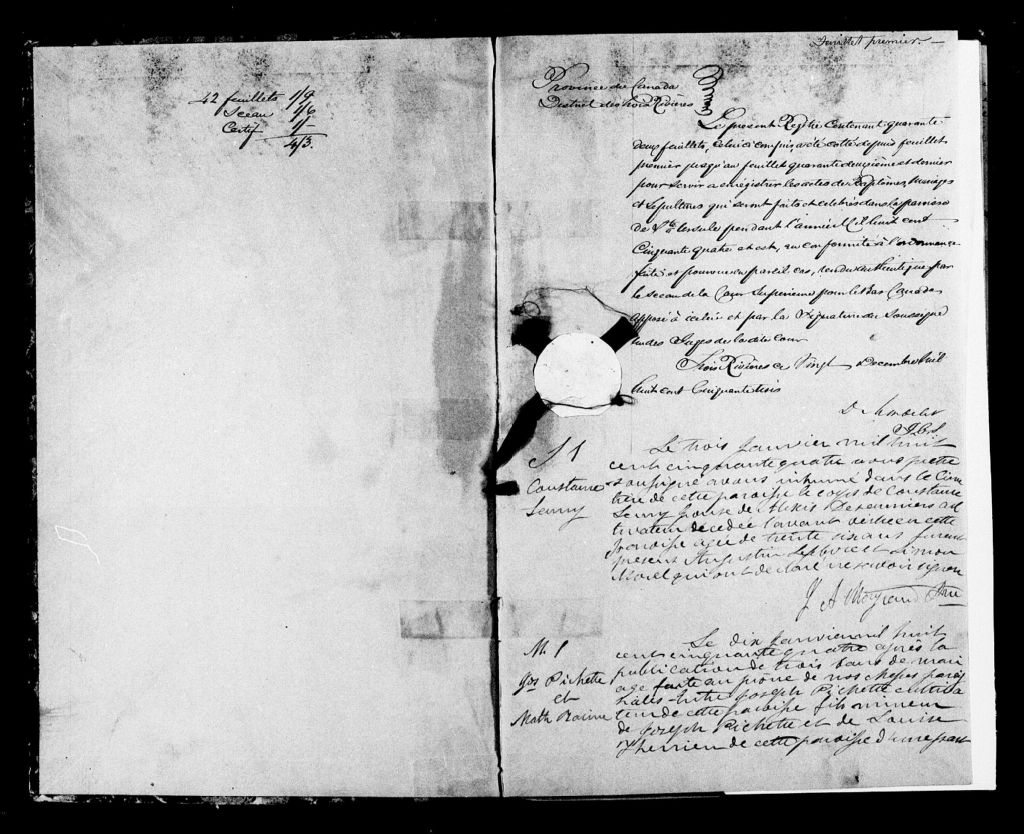 42 feuillets 1/9
Sceau 1/6
Certif 1/-
4/3.
Feuillet premier.
Province du Canada
District des trois Rivières
Le present Régitre Contenant quarante
deux feuillets, celui ci compris, a été cotté depuis feuillet
premier jusqu'au feuillet quarante deuxieme et dernier
pour servir a enrégistrer les actes des Baptêmes, Mariages
et Sepultures qui seront faits et célébrés dans la paroisse
de Ste Ursule pendant l'année Mil huit cent
Cinquante quatre et est, en conformité à l'ordonnance
faite et pourvue en pareil cas, rendu authentique par
le sceau de la Cour Superieure pour le Bas Canada
apposé à icelui et par la Signature du Soussigné
un des Juges de la dite Cour
Trois Rivières ce Vingt Decembre Mil
huit cent Cinquante trois
D. Mondelet
S 1
Constance
Lamy
Le trois Janvier mil huit
cent cinquante quatre nous prêtre
soussigné avons inhumé dans le Cime
tière de cette paroisse le corps de Constance
Lamy épouse de Alexis Desauniers cul
tivateur décedée l'avant veille en cette
paroisse agée de trente six ans furent
présent Augustin Lefebvre et Simon
Morel qui ont déclaré ne savoir signer
J A Ptre
M. 1
Jos Pichette
et
Math
Le dix Janvier mil huit
cent cinquante quatre après la
publication de trois bans de mari
age faite au prône de nos messes parois
siales entre Joseph Pichette cultiva
teur de cette paroisse fils mineur
de Joseph Pichette et de Louise
Therrien de cette paroisse d'une part